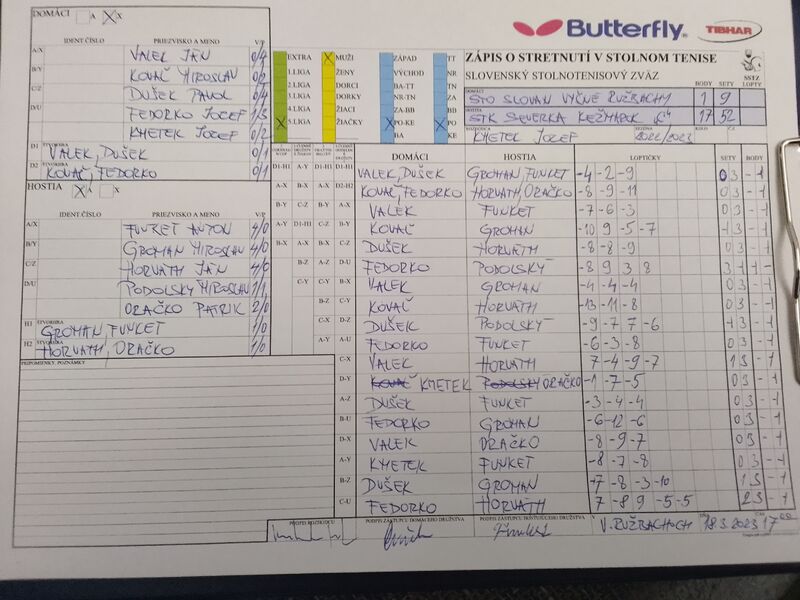 DOMÁCI A X X
IDENT ČÍSLO PRIEZVISKO A MENO V/P
A/X VALEK JÁN 0/4
B/Y KOVAČ MIROSLAV 0/2
C/Z DUŠEK PAVOL 0/4
D/U FEDORKO JOZEF 1/3
KMETEK JOZEF 0/2
D1 VALEK, DUŠEK 0/1
D2 KOVAČ, FEDORKO 0/1
HOSTIA X A X
IDENT ČÍSLO PRIEZVISKO A MENO V/P
A/X FUNKET ANTON 4/0
B/Y GROMAN MIROSLAV 4/0
C/Z HORVÁTH JÁN 4/0
D/U PODOLSKÝ MIROSLAV 1/1
ORAČKO PATRIK 2/0
H1 ŠTVORHRA GROMAN, FUNKET 1/0
H2 ŠTVORHRA HORVÁTH, ORAČKO 1/0
PRIPOMIENKY, POZNÁMKY
Butterfly TIBHAR
EXTRA X MUŽI ZÁPAD TT
1.LIGA ŽENY VÝCHOD NR
2.LIGA DORCI BA-TT TN
3.LIGA DORKY NR-TN ZA
4.LIGA ŽIACI ZA-BB BB
X 5.LIGA ŽIAČKY X PO-KE X PO
BA KE
ZÁPIS O STRETNUTÍ V STOLNOM TENISE
SLOVENSKÝ STOLNOTENISOVÝ ZVÄZ
SSTZ
BODY SETY LOPTY
DOMÁCI STO SLOVAN VYŠNÉ RUŽBACHY 1 9
HOSTIA STK SEVERKA KEŽMAROK 17 52
KMETEK JOZEF 2022/2023 KOLO
DOMÁCI HOSTIA LOPTIČKY SETY BODY
D1-H1 A-Y D1-H1 D1-H1 VALEK, DUŠEK GROMAN FUNKET -4 -2 -9 0 3 - 1
A-X B-X A-X D2-H2 KOVAČ, FEDORKO HORVÁTH, ORAČKO -8 -9 -11 0 3 - 1
B-Y C-Z B-Y A-X VALEK FUNKET -7 -6 -3 0 3 - 1
A-Y D1-H1 C-Z B-Y KOVAČ GROMAN -10 9 -5 -7 1 3 - 1
B-X A-X B-X C-Z DUŠEK HORVÁTH -8 -8 -9 0 3 - 1
B-Z A-Z D-U FEDORKO PODOLSKÝ -8 9 3 8 3 1 1 -
C-Y C-Y B-X VALEK GROMAN -4 -4 -4 0 3 - 1
B-Z C-Y KOVAČ HORVÁTH -13 -11 -8 0 3 - 1
C-X D-Z DUŠEK PODOLSKÝ -9 -7 7 -6 1 3 - 1
A-Y A-U FEDORKO FUNKET -6 -3 -8 0 3 - 1
C-X VALEK HORVÁTH 7 -4 -9 -7 1 3 - 1
D-Y KOVAČ KMETEK PODOLSKÝ ORAČKO -1 -7 -5 0 3 - 1
A-Z DUŠEK FUNKET -3 -4 -4 0 3 - 1
B-U FEDORKO GROMAN -6 -12 -6 0 3 - 1
D-X VALEK ORAČKO -8 -9 -7 0 3 - 1
A-Y KMETEK FUNKET -8 -7 -8 0 3 - 1
B-Z DUŠEK GROMAN -7 -8 -3 -10 1 3 - 1
C-U FEDORKO HORVÁTH 7 -8 9 -5 -5 2 3 - 1
PODPIS ROZHODCU PODPIS ZÁSTUPCU DOMÁCEHO DRUŽSTVA PODPIS ZÁSTUPCU HOSŤUJÚCEHO DRUŽSTVA V. RUŽBACHOCH 18.3.2023 17 00